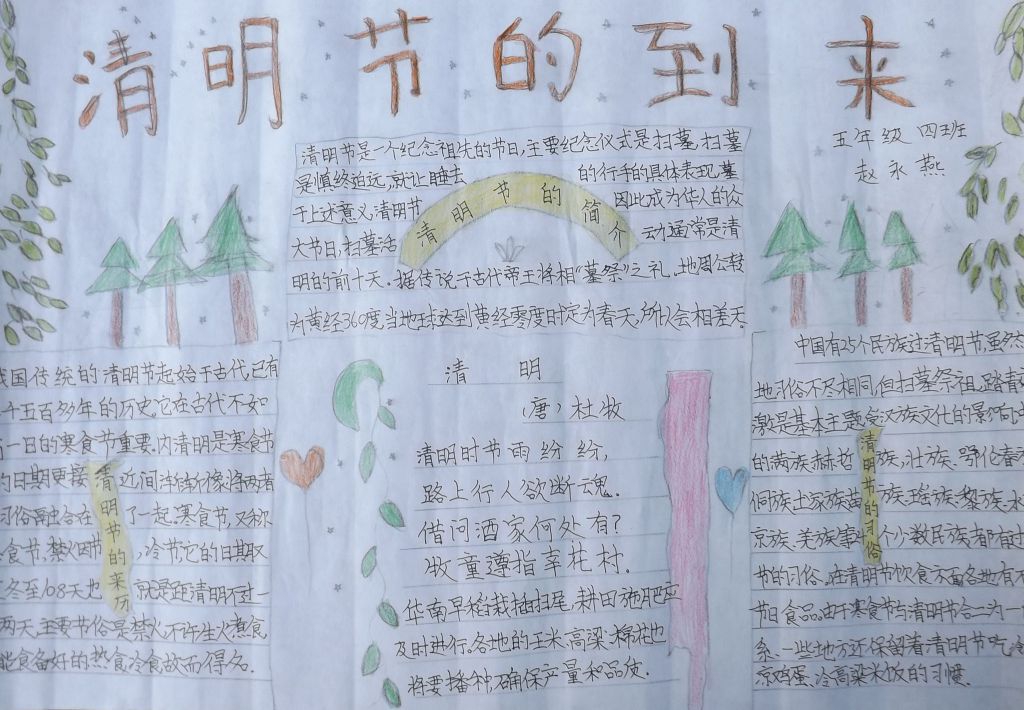 清明节的到来
五年级 四班
赵永燕
清明节的简介
清明节是一个纪念祖先的节日,主要纪念仪式是扫墓,扫墓
是慎终追远,就让睦去的行孝的具体表现,墓
于上述意义,清明节因此成为华人的众
大节日,扫墓活动通常是清
明的前十天.据传说于古代帝王将相“墓祭”之礼.地周公转
为黄经360度,当地球达到黄经零度时定为春天,所以会相差天.
清明节的来历
我国传统的清明节起始于古代,已有
二千五百多年的历史,它在古代不如
前一日的寒食节重要,内清明是寒食节
的日期更接近间
习俗
了一起.寒食节,又称
食节,禁火四节,冷节它的日期又
冬至108天也就是距清明不过一
两天,主要节俗是禁火不许生火煮食,
能食备好的热食冷食故而得名.
清 明
(唐)杜牧
清明时节雨纷纷,
路上行人欲断魂.
借问酒家何处有?
牧童遵指幸花村.
华南早稻栽插扫尾,耕田施肥应
及时进行.各地的玉米.高粱.棉花也
将要播种,确保产量和品度.
清明节的习俗
中国有25个民族过清明节,虽然各
地习俗不尽相同,但扫墓祭祖,踏青
是基本主题,受汉族文化的影响,
的满族.赫哲族,壮族.鄂伦春
侗族.土家族苗族.瑶族.黎族.水
京族.羌族事个少数民族都有过
节的习俗.在清明节饮食方面各地有不
节日食品.由于寒食节与清明节合二为一
系.一些地方还保留着清明节吃冷
凉鸡蛋.冷高粱米饭的习惯.